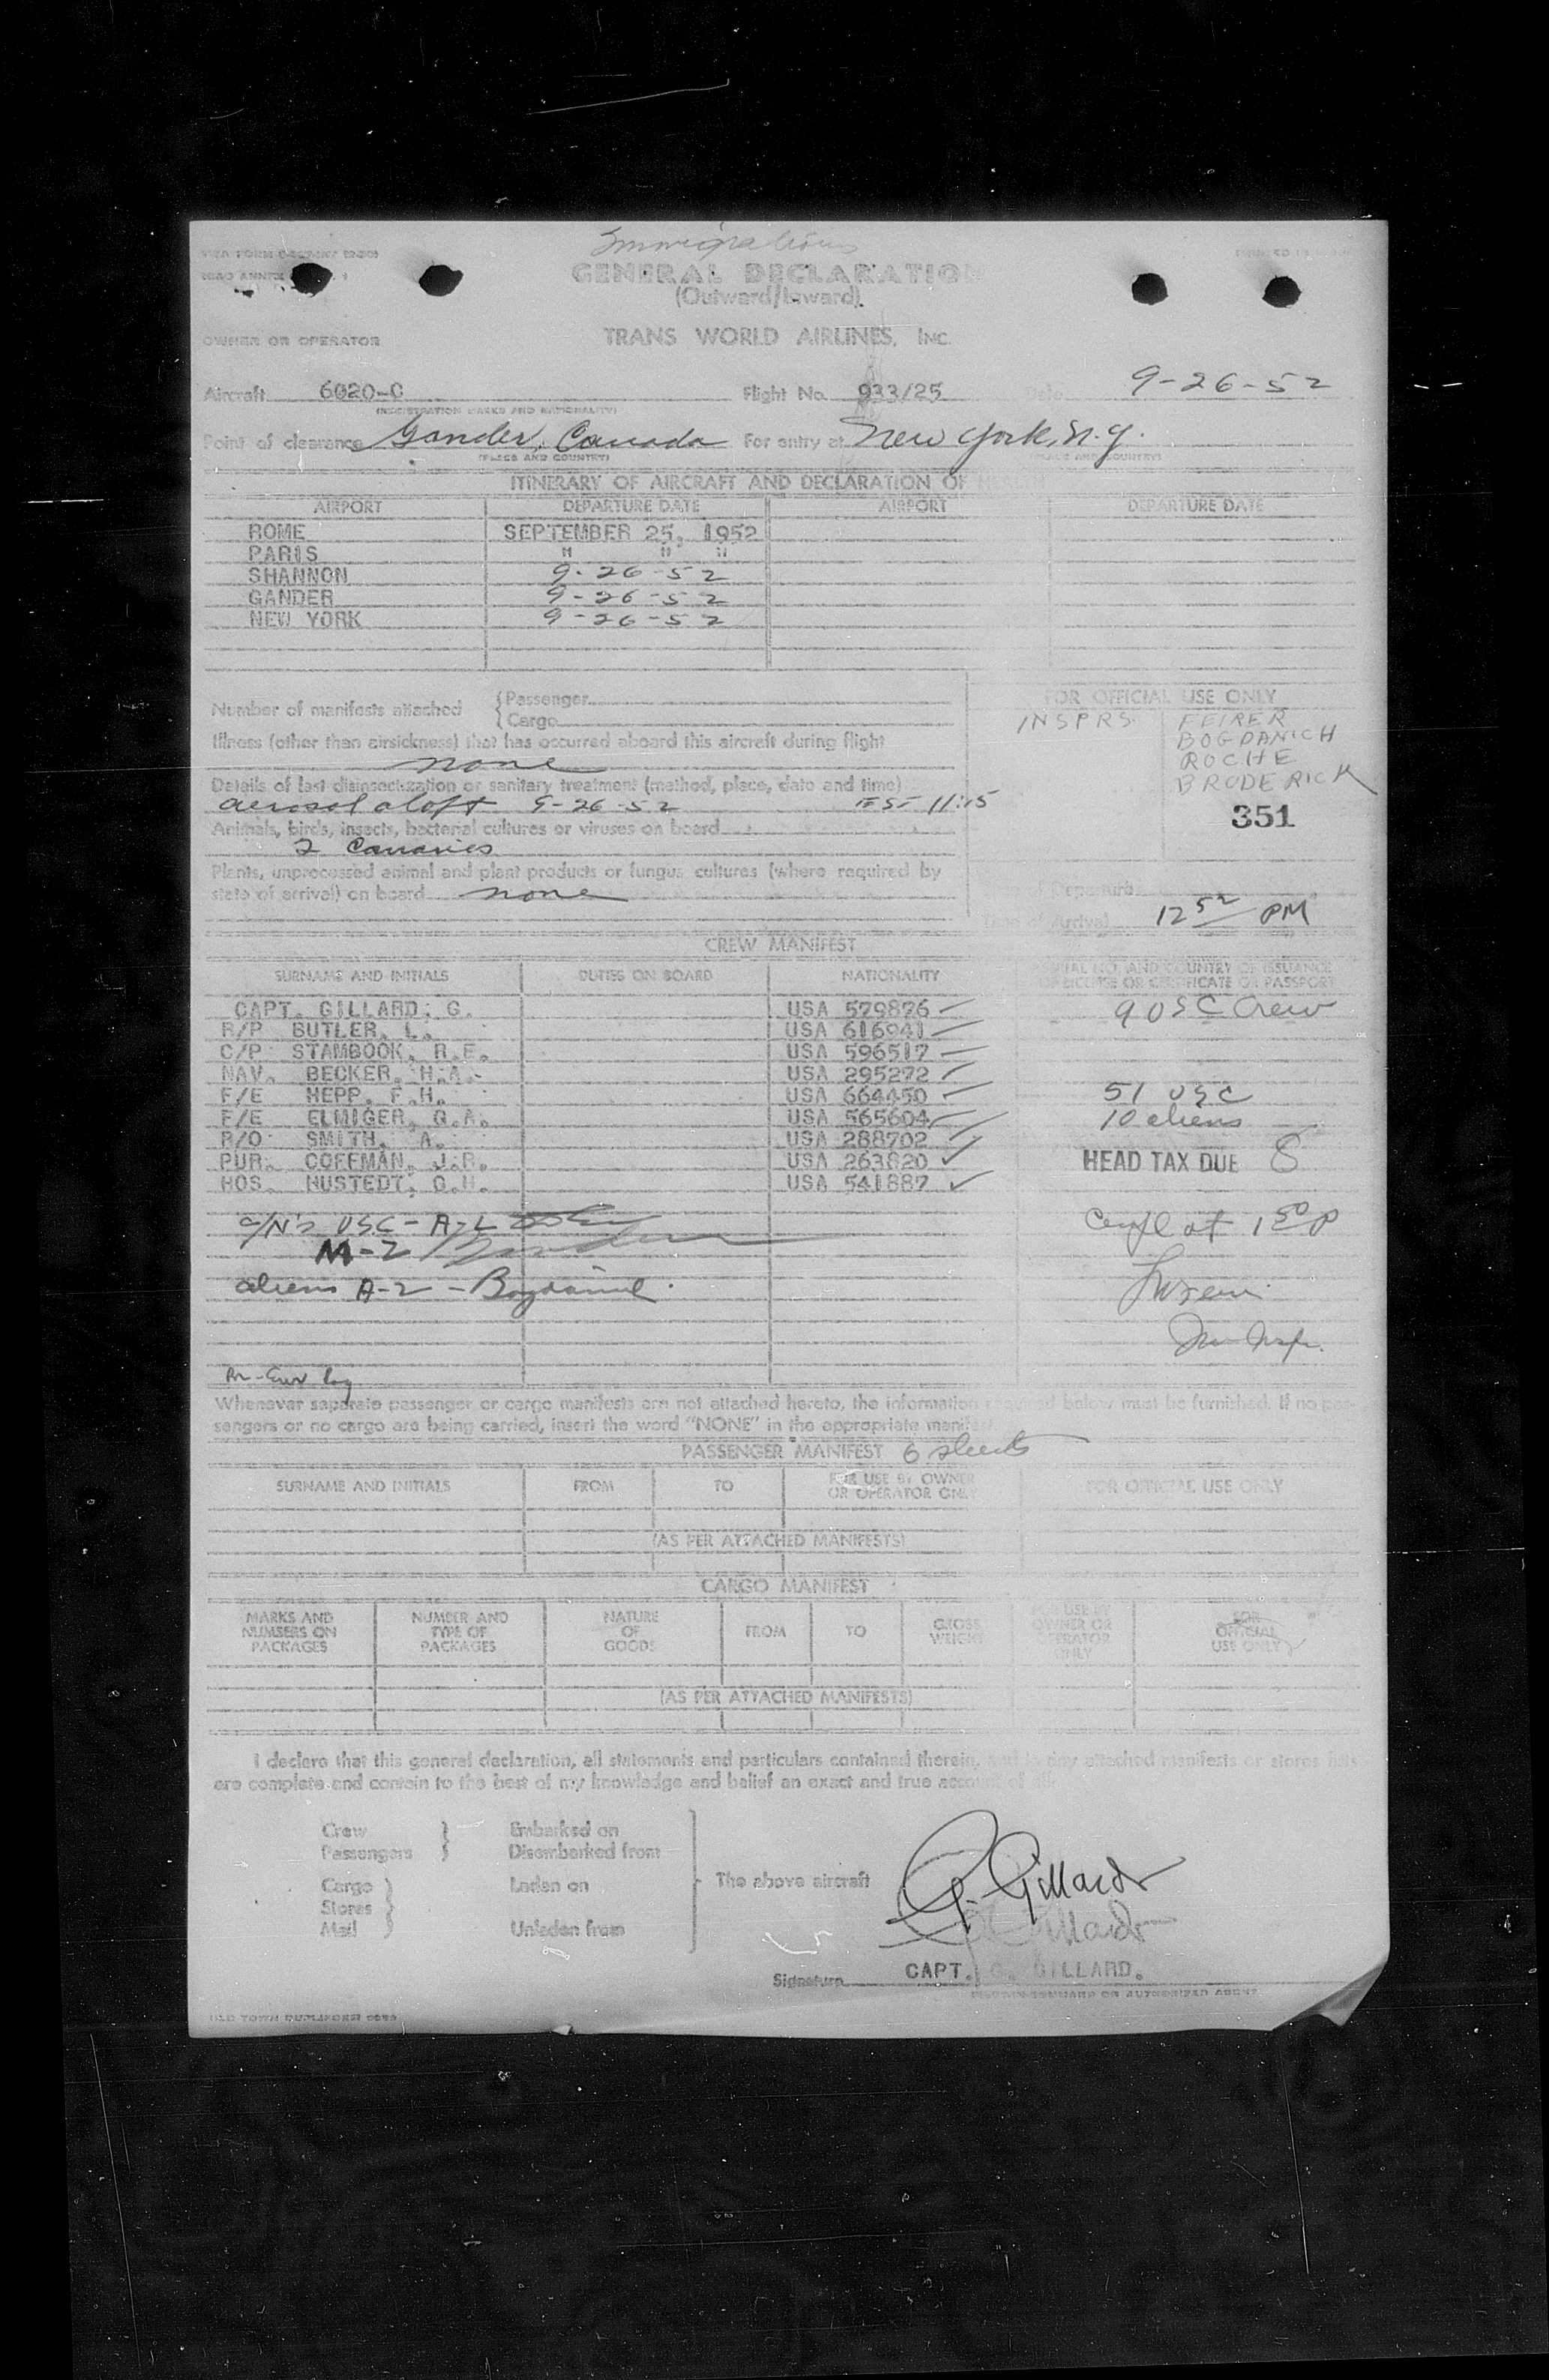 Immigration
GENERAL DECLARATION
(Outward/Inward)
OWNER OR OPERATOR TRANS WORLD AIRLINES, INC.
Aircraft 6020-C Flight No. 933/25 Date 9-26-52
(REGISTRATION MARKS AND NATIONALITY)
Point of clearance Gander, Canada For entry at New York, N.Y.
(PLACE AND COUNTRY) (PLACE AND COUNTRY)
ITINERARY OF AIRCRAFT AND DECLARATION OF HEALTH
AIRPORT DEPARTURE DATE AIRPORT DEPARTURE DATE
ROME SEPTEMBER 25, 1952
PARIS " " "
SHANNON 9-26-52
GANDER 9-26-52
NEW YORK 9-26-52
Number of manifests attached { Passenger
{ Cargo
Illness (other than airsickness) that has occurred aboard this aircraft during flight
none
Details of last disinsectization or sanitary treatment (method, place, date and time)
aerosol aloft 9-26-52 EST 11:15
Animals, birds, insects, bacterial cultures or viruses on board
2 Canaries
Plants, unprocessed animal and plant products or fungus cultures (where required by
state of arrival) on board none
FOR OFFICIAL USE ONLY
INSPRS. FEIRER
BOGDANICH
ROCHE
BRODERICK
351
Departure
Arrival 12 52 PM
CREW MANIFEST
SURNAME AND INITIALS DUTIES ON BOARD NATIONALITY SERIAL NO. AND COUNTRY OF ISSUANCE
OF LICENSE OR CERTIFICATE OR PASSPORT
CAPT. GILLARD, G. USA 579876 9 USC Crew
R/P BUTLER, L. USA 616941
C/P STAMBOOK, R.E. USA 596517
NAV. BECKER, H.A. USA 295272
F/E HEPP, F.H. USA 664450 51 USC
F/E ELMIGER, Q.A. USA 565604 10 aliens
R/O SMITH, A. USA 288702
PUR. COFFMAN, J.R. USA 263820 HEAD TAX DUE 8
HOS. NUSTEDT, G.H. USA 541887
USC - A-L
M-2
aliens A-2 - Bogdanich
at 1 50 P
Whenever separate passenger or cargo manifests are not attached hereto, the information required below must be furnished. If no pas-
sengers or no cargo are being carried, insert the word "NONE" in the appropriate manifest
PASSENGER MANIFEST 6 sheets
SURNAME AND INITIALS FROM TO FOR USE BY OWNER OR OPERATOR ONLY FOR OFFICIAL USE ONLY
(AS PER ATTACHED MANIFESTS)
CARGO MANIFEST
MARKS AND NUMBERS ON PACKAGES NUMBER AND TYPE OF PACKAGES NATURE OF GOODS FROM TO GROSS WEIGHT FOR USE BY OWNER OR OPERATOR ONLY FOR OFFICIAL USE ONLY
(AS PER ATTACHED MANIFESTS)
I declare that this general declaration, all statements and particulars contained therein, and in any attached manifests or stores lists
are complete and contain to the best of my knowledge and belief an exact and true account of
Crew } Embarked on
Passengers } Disembarked from
Cargo } Laden on The above aircraft
Stores }
Mail } Unladen from
G. Gillard
Signature CAPT. G. GILLARD.